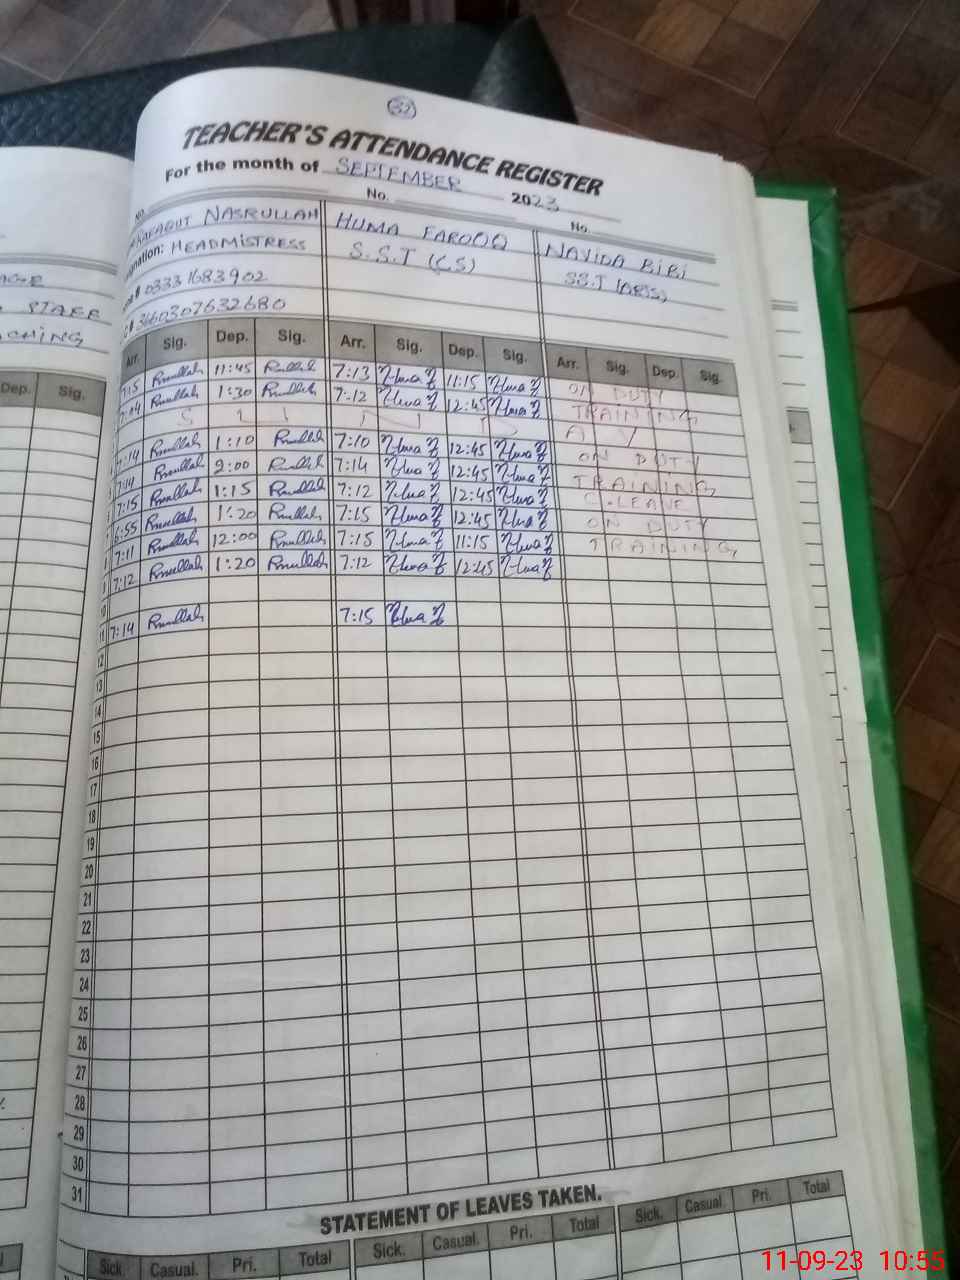 32
TEACHER'S ATTENDANCE REGISTER
For the month of SEPTEMBER 2023
No. No. No.
NASRULLAH HUMA FAROOQ NAVIDA BIBI
HEADMISTRESS S.S.T (CS) SS.T (ARTS)
03331683902
3660307632680
AGE
STAFF
CHING
Dep. Sig.
Arr. Sig. Dep. Sig. Arr. Sig. Dep. Sig. Arr. Sig. Dep. Sig.
7:15 11:45 7:13 Huma 11:15 Huma ON DUTY
7:14 1:30 7:12 Huma 12:45 Huma TRAINING
S U N D A Y
7:14 1:10 7:10 Huma 12:45 Huma ON DUTY
7:14 2:00 7:14 Huma 12:45 Huma TRAINING
7:15 1:15 7:12 Huma 12:45 Huma C.LEAVE
6:55 1:20 7:15 Huma 12:45 Huma ON DUTY
7:11 12:00 7:15 Huma 11:15 Huma TRAINING
7:12 1:20 7:12 Huma 12:45 Huma
10
11 7:14 7:15 Huma
12
13
14
15
16
17
18
19
20
21
22
23
24
25
26
27
28
29
30
31
STATEMENT OF LEAVES TAKEN.
Sick Casual. Pri. Total Sick. Casual. Pri. Total Sick. Casual. Pri. Total
11-09-23 10:55